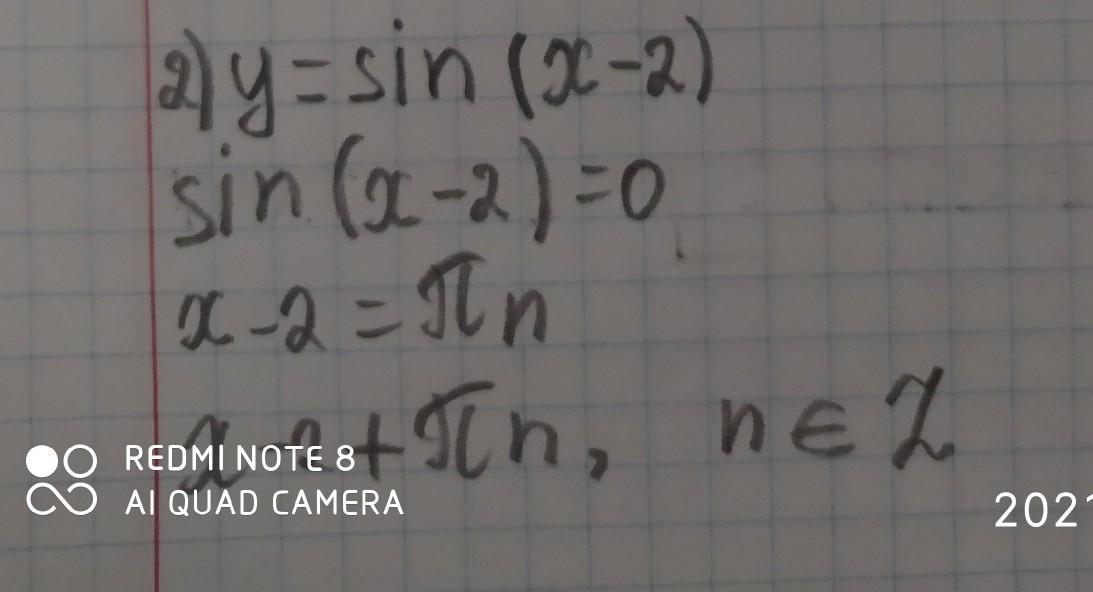 2) y = sin (x - 2)
sin (x - 2) = 0
x - 2 = πn
+ πn, n ∈ Z
REDMI NOTE 8
AI QUAD CAMERA
2021